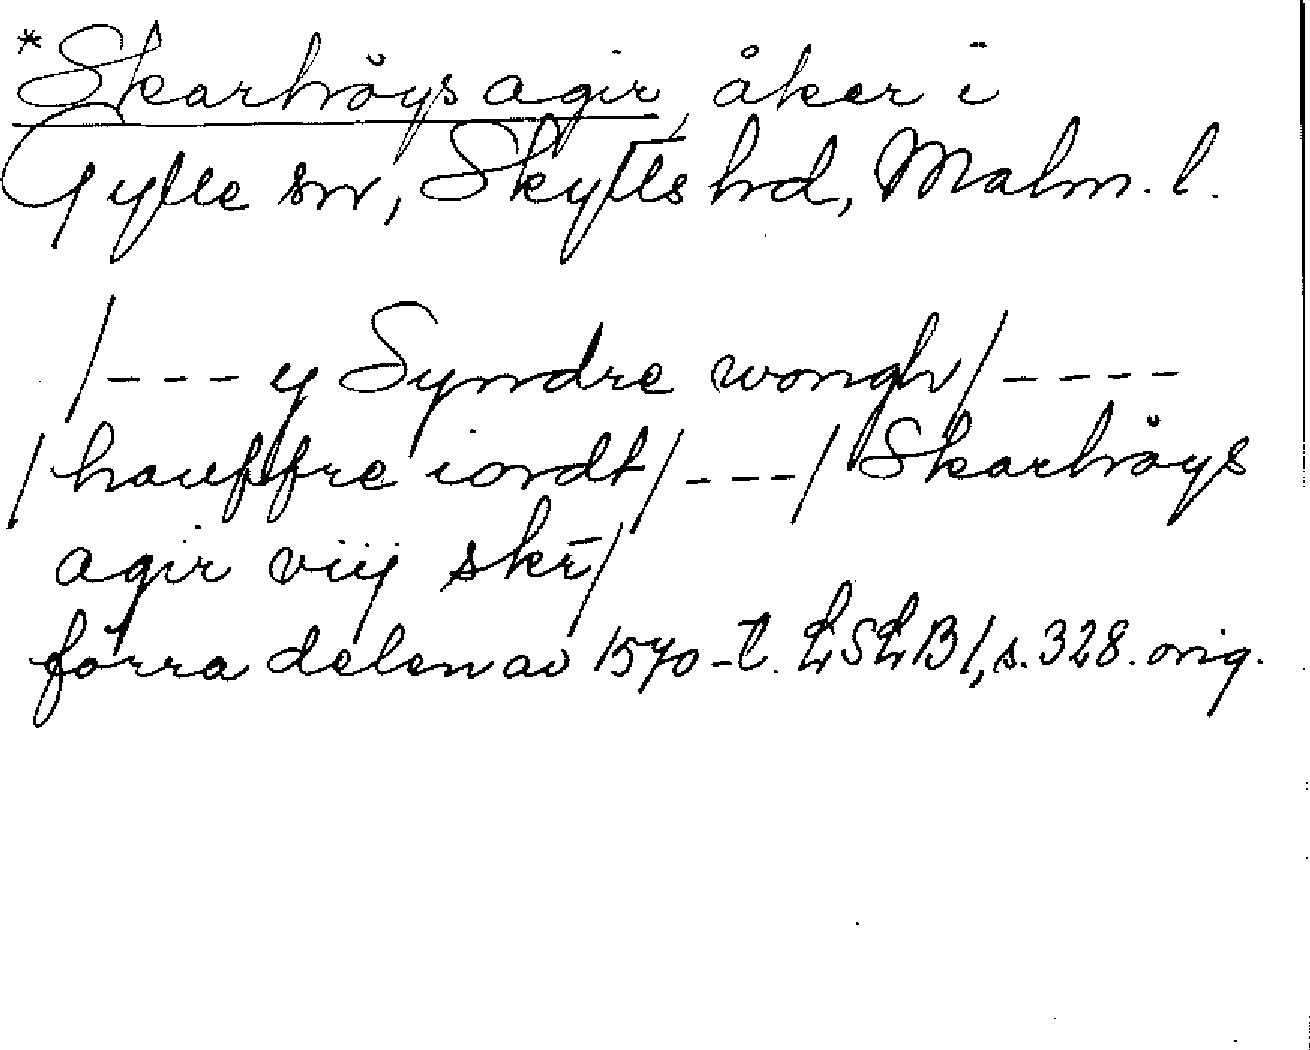 *Skarhöys agir, åker i
Gylle sn, Skytts hd, Malm. l.
/--- y Syndre wongh/----
/hauffre iordt/---/Skarhöys
agir viij skr̄/
förra delen av 1570-t. LSLB1, s. 328. orig.